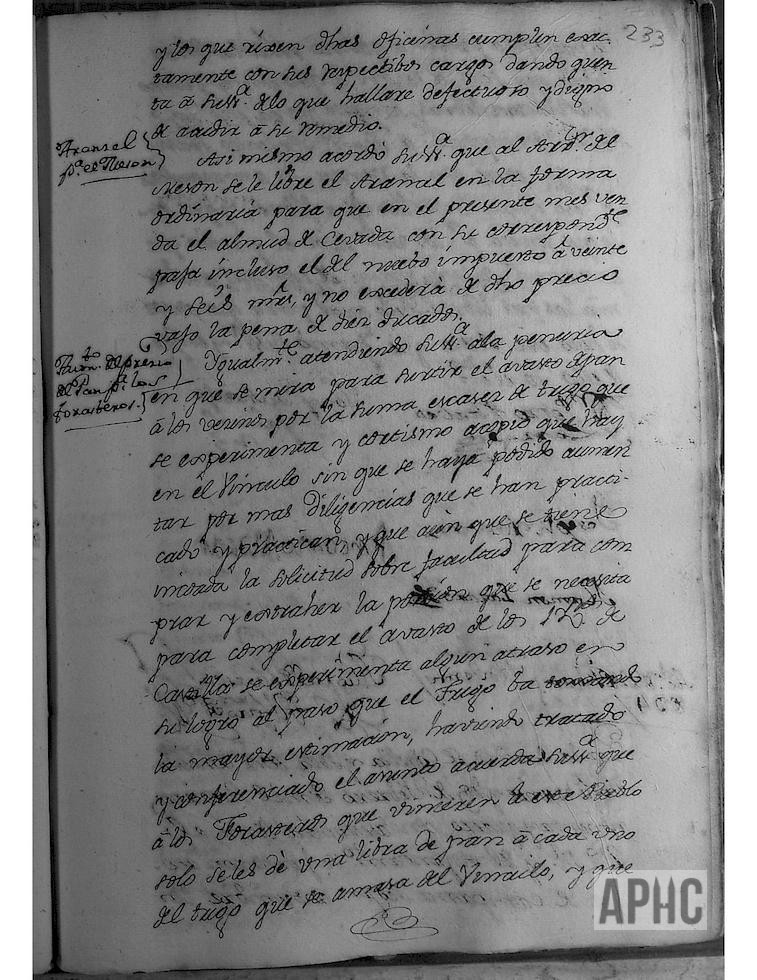 233
y los que rixen dhas oficinas cumplen exac-
tamente con sus respectibos cargos dando quen-
ta à suSSª. de lo que hallare defectuoso y digno
de acudir à su remedio.
Aranzel
pª. el Meson
Asi mismo acordò suSSª. que al Arrᵒʳ. del
Meson se le libre el Aranzel en la forma
ordinaria para que en el presente mes ven-
da el almud de Cevada con su correspondᵗᵉ
paja incluso el del nuebo impuesto à veinte
y seis mrs, y no excederà de dho precio
vajo la pena de diez ducados.
del precio
del Pan pª. los
forasteros.
Ygualmᵗᵉ. atendiendo suSSª. a la penuria
en que se mira para surtir el avasto de pan
à los vecinos por la suma escasez de trigo que
se experimenta y cortisimo acopio que hay
en el Vinculo sin que se haya podido aumen-
tar por mas diligencias que se han practi-
cado y practican, y que aun que se tiene
incoada la solicitud sobre facultad para com-
prar y extraher la porcion que se necesita
para completar el avasto de los de
Castilla se experimenta algun atraso en
su logro al paso que el Trigo ba tomando
la mayor estimacion, haviendo tratado
y conferenciado el asunto acuerda suSSª. que
à los Forasteros que vinieren à este Pueblo
solo se les dè una libra de pan à cada uno
del trigo que se amasa del Vinculo, y que
APHC